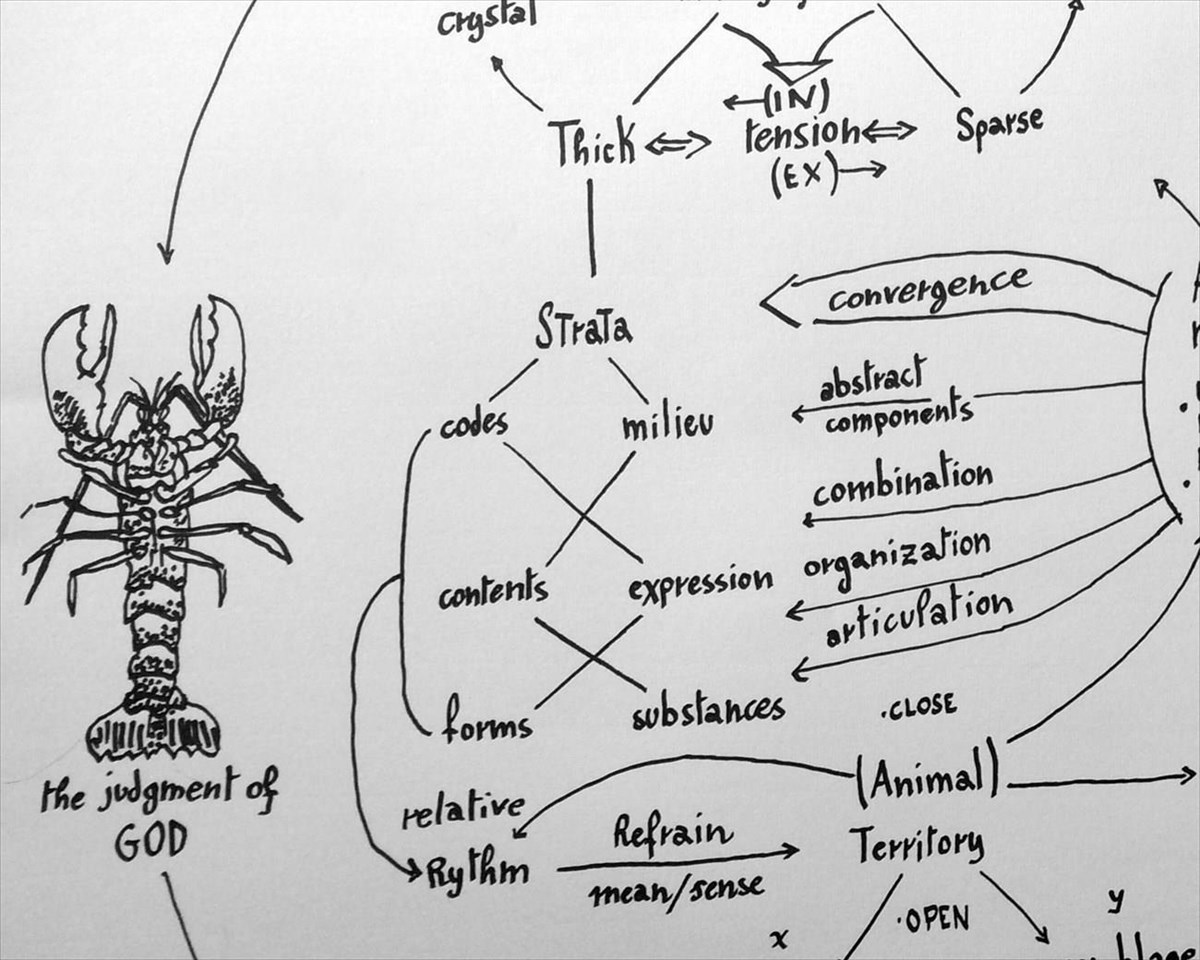 crystal
(IN)
Thick
tension
Sparse
(EX)
convergence
Strata
abstract
components
codes
milieu
combination
organization
contents
expression
articulation
forms
substances
.CLOSE
(Animal)
the judgment of
GOD
relative
Rythm
Refrain
mean/sense
Territory
.OPEN
x
y